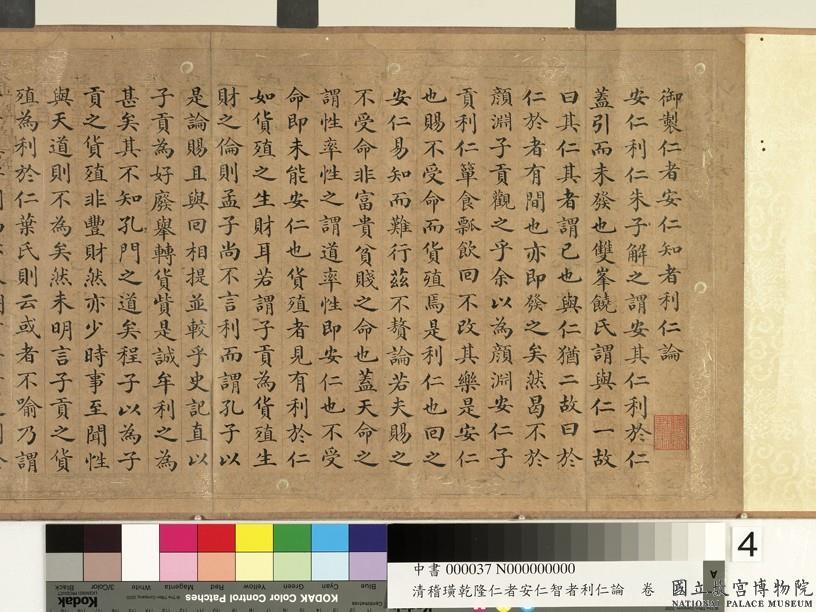 御製仁者安仁知者利仁論
安仁利仁朱子解之謂安其仁利於仁
蓋引而未發也雙峯饒氏謂與仁一故
曰其仁其者謂己也與仁猶二故曰於
仁於者有間也亦即發之矣然曷不於
顏淵子貢觀之乎余以為顏淵安仁子
貢利仁簞食瓢飲回不改其樂是安仁
也賜不受命而貨殖焉是利仁也回之
安仁易知而難行茲不贅論若夫賜之
不受命非富貴貧賤之命也蓋天命之
謂性率性之謂道率性即安仁也不受
命即未能安仁也貨殖者見有利於仁
如貨殖之生財耳若謂子貢為貨殖生
財之倫則孟子尚不言利而謂孔子以
是論賜且與回相提並較乎史記直以
子貢為好廢舉轉貨貲是誠牟利之為
甚矣其不知孔門之道矣程子以為子
貢之貨殖非豐財然亦少時事至聞性
與天道則不為矣然未明言子貢之貨
殖為利於仁葉氏則云或者不喻乃謂
Kodak
KODAK Color Control Patches
Black
3/Color
White
Magenta
Red
Yellow
Green
Cyan
Blue
4
A
中書 000037 N000000000
清稽璜乾隆仁者安仁智者利仁論 卷
國立故宮博物院
NATIONAL PALACE MUSEUM